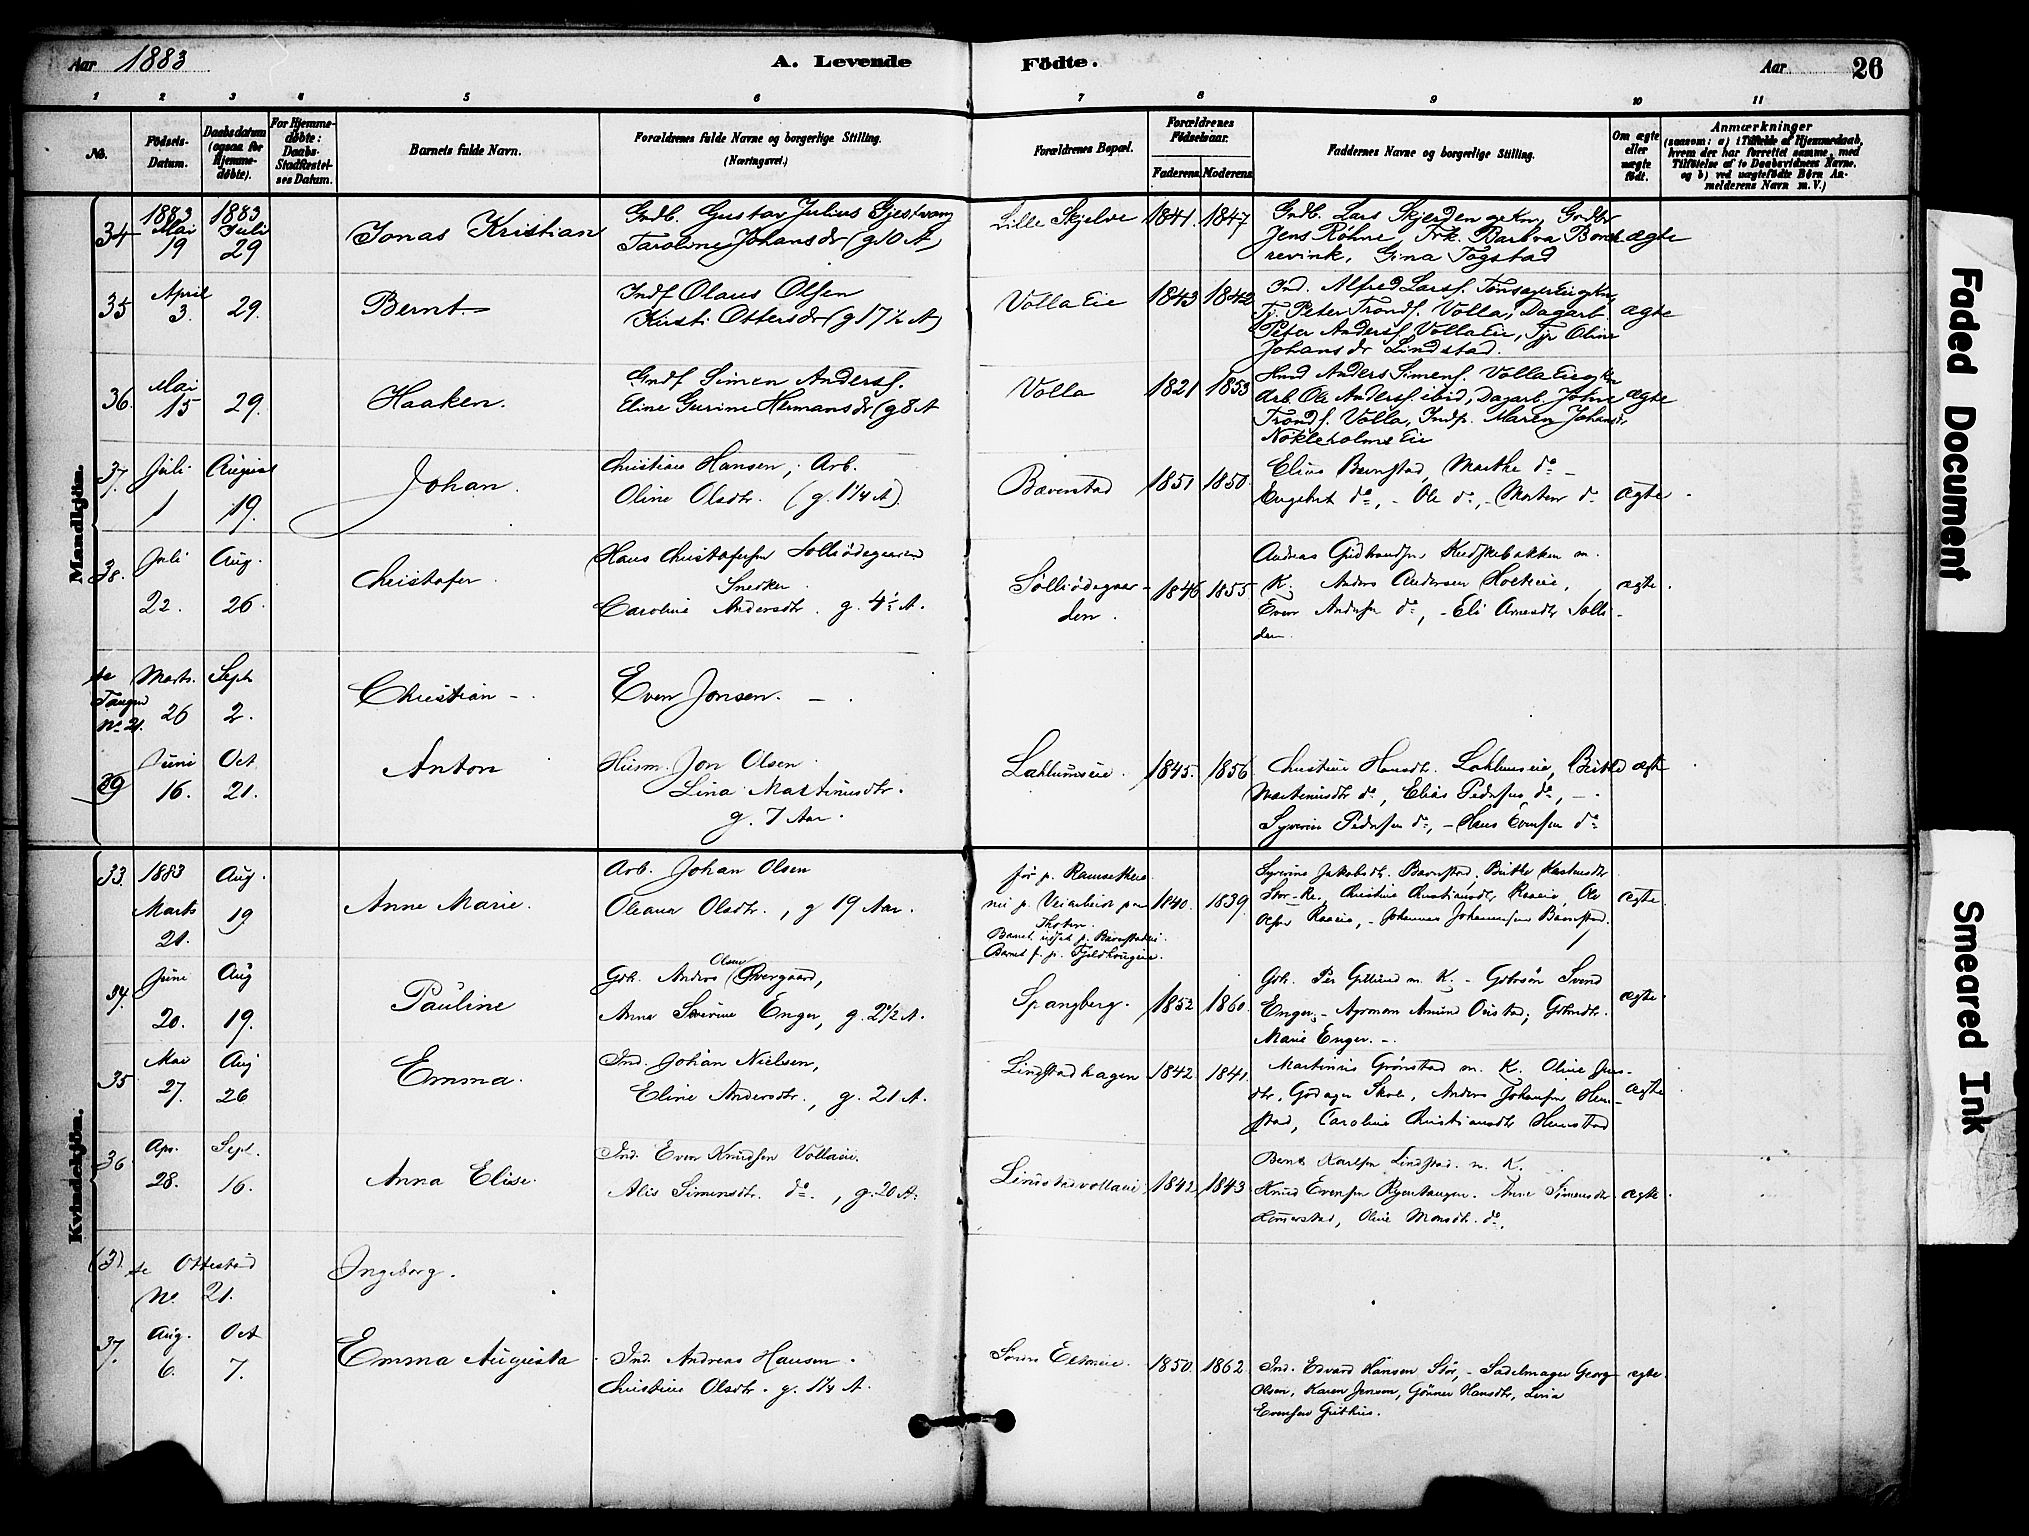 Aar 1883
A. Levende Födte.
Aar 26
1 2 3 4 5 6 7 8 9 10 11
No.
Födsels-Datum.
Daabsdatum (ogsaa for Hjemme-døbte).
For Hjemme-døbte: Daabs-Stadfæstel-ses Datum.
Barnets fulde Navn.
Forældrenes fulde Navne og borgerlige Stilling. (Næringsvei.)
Forældrenes Bopæl.
Forældrenes Födselsaar.
Faderens Moderens
Faddernes Navne og borgerlige Stilling.
Om ægte eller uægte födt.
Anmærkninger
(saasom: a) i Tilfælde af Hjemmedaab, hvem der har forrettet samme, med Tilföielse af to Daabsvidners Navne, og b) ved uægtefödte Börn An-melderens Navn m. V.)
Mandkjön.
34 1883 Mai 19 1883 Juli 29
Jonas Kristian
Grdb. Gustav Julius Gjestvang
Taroline Johansdr (g 10 A)
Lille Skjelve 1841. 1847
Grdb. Lars Skjerden gkn, Grdbr
Jens Røhne, Frk. Barbra Bor
revink, Gina Togstad
ægte
35 April 3. 29.
Bernt
Indf Olaus Olsen
Kirsti Ottersdr (g 17 1/2 A)
Volla Eie 1843 1842
Ind. Alfred Larsf. Tonsager Eie gkn,
Tj. Peter Trondf. Volla, Dagarb.
Peter Andersf Volla Eie, Tjp Oline
Johansdr Lindstad.
ægte
36. Mai 15 29.
Haaken.
Grdf Simen Andersf.
Eline Gurine Hermansdr (g 8 A
Volla 1821 1853
Hmd Anders Simenf. Volla Eie gkn
Arb. Ole Andersf ibid, Dagarb. Johne
Trondf. Volla, Indp. Maren Johansdr
Nokleholms Eie
ægte
37. Juli 1 August 19.
Johan.
Christian Hansen, Arb.
Oline Olsdtr. (g. 1 1/4 A)
Bævenstad 1851 1850
Elias Bævnstad, Marthe do -
Engebret do, - Ole do, - Morten do.
ægte.
38. Juli 22. Aug. 26.
Christofer.
Hans Christofersen Solliødegaarden
Snedker
Caroline Andersdtr. g. 4 1/2 A.
Solliødegaar-
den. 1846 1855.
Andreas Gudbrandsen m.
K. Anders Andersen
Even Andersen do, - Eli Arnesdtr Solli-
den.
ægte.
se Tangen No 21. Marts. 26 Sept 2.
Christian -.
Even Jonsen. -.
39 Juni 16. Oct. 21.
Anton
Husm. Jon Olsen.
Lina Martinusdtr.
g. 7 Aar.
Laklumseie. 1845. 1856
Christine Hansdtr. Laklumseie, Birthe
Martinusdtr do, Elias Pedersen do, -.
Syverine Pedersen do, - Hans Evensen do
ægte
Kvindekjön.
33. 1883 Marts 21. Aug. 19
Anne Marie.
Arb. Johan Olsen
Oleana Olsdtr., g 19 Aar.
før p.
nu p. Veiarbeide paa
Thoten.
1840. 1839.
Syverine Jakobsdtr. Bævnstad, Birthe
Christine Christiansdtr Raaeie, Ole
Olsen Raaeie, - Johannes Johannesen Bævnstad.
ægte.
34. Juni 20. Aug 19.
Pauline
Gbr. Anders Olsen Øvergaard,
Anna Severine Enger, g. 2 1/2 A.
Spangberg. 1852 1860.
Gbr. Per Gillund m. K. - Gbrsøn Svend
Enger, - Amund Ovistad, Gbrdtr.
Marie Enger. -.
ægte.
35 Mai 27. Aug 26
Emma.
Ind. Johan Nielsen,
Eline Andersdtr., g. 21 A.
Lindstadhagen 1842. 1841.
Martinius Grønstad m. K. Oline Jens-
dtr, Godager Skole, Anders Johansen Hem-
stad, Caroline Christiansdtr Hemstad
ægte
36. Apr. 28. Sept. 16.
Anna Elise.
Ind. Even Knudsen Vollaeie.
Alis Simensdtr. do., g. 20 A.
Lindstadvollaeie 1842. 1843
Bernt Karlsen Lindstad. m. K.
Knud Evensen. Anne Simensdtr
Hommerstad, Oline Monsdtr. do.
ægte
(3). se Ottestad No. 21.
Ingeborg.
37. Aug. 6. Oct 7.
Emma Augusta
Ind. Andreas Hansen.
Christine Olsdtr. g. 1 1/4 A.
1850. 1862
Ind. Edvard Hansen Stor, - Sadelmager Georg
Olsen, Karen Jensen, Gunner Hansdtr, Lina
Evensen
ægte.
Faded Document
Smeared Ink